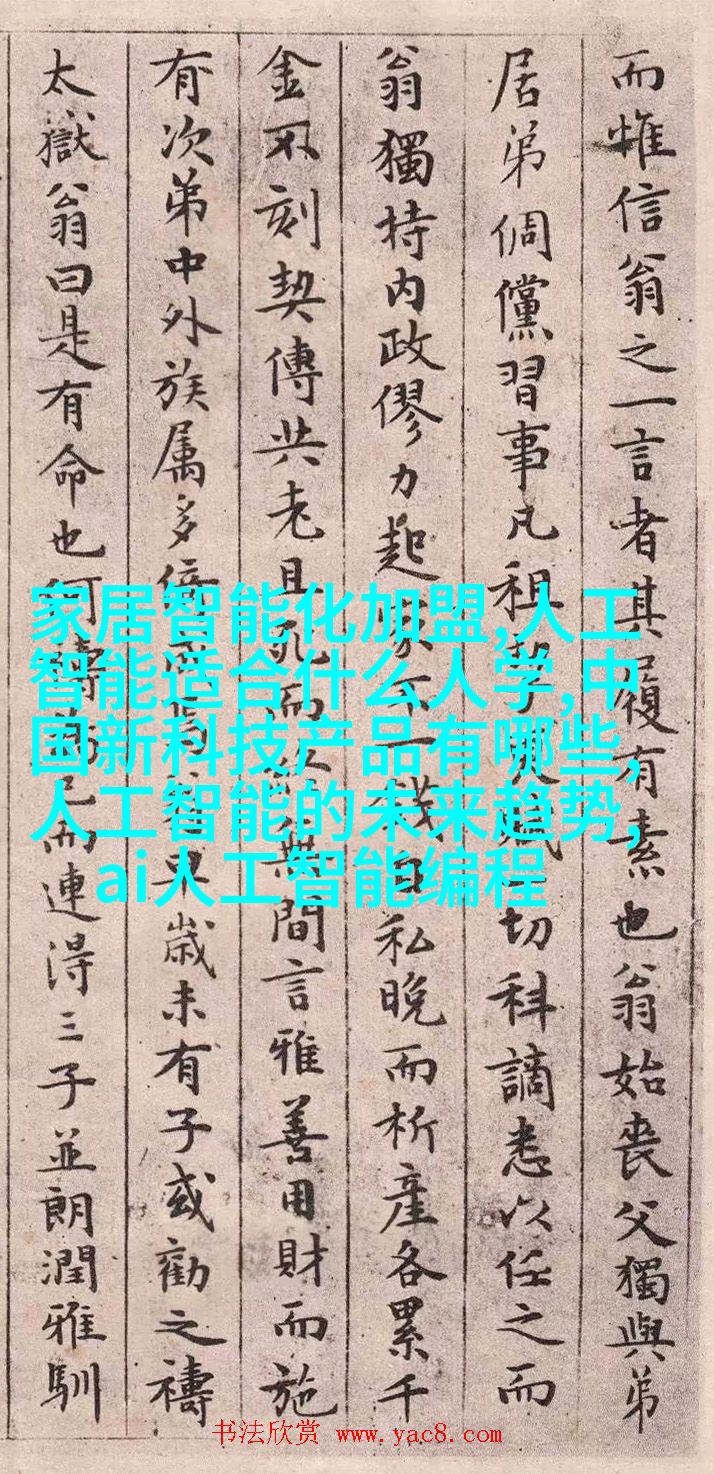 而惟信翁之一言者其履有素也翁始喪父獨與弟
居弟倜儻習事凡租切科謫悉以任之而
翁獨持内政僇力起家不一錢自私晚而析產各累千
金不刻契傳共老且死而無間言雅善用財而施
有次苐中外族属多早歲未有子或勸之禱
太嶽翁曰是有命也何禱為已而連得三子並朗潤雅馴
家居智能化加盟,人工
智能适合什么人学,中
国新科技产品有哪些,
人工智能的未来趋势,
ai人工智能编程
书法欣赏 www.yac8.com